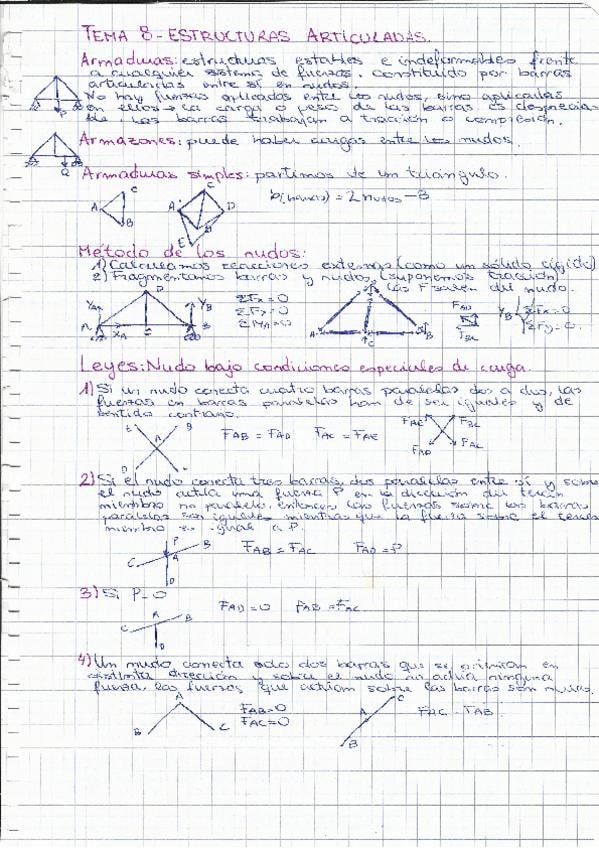 TEMA 8 - ESTRUCTURAS ARTICULADAS.
Armaduras: estructuras estables e indeformables frente
a cualquier sistema de fuerzas. Constituido por barras
articuladas entre sí en nudos.
No hay fuerzas aplicadas entre los nudos, sino aplicadas
en ellos. La carga o peso de las barras es desprecia-
ble. Las barras trabajan a tracción o compresión.
Armazones: puede haber cargas entre los nudos.
Q
Armaduras simples: partimos de un triángulo.
A C B A C D B E b(barras) = 2 nudos - 3
Método de los nudos:
1) Calculamos reacciones externas (como un sólido rígido)
2) Fragmentamos barras y nudos, (suponemos tracción)
las F salen del nudo.
YA A XA C D YB B ΣFx = 0
ΣFy = 0
ΣMA = 0
A C B FBD FBC YB ΣFx = 0
ΣFy = 0
Leyes: Nudo bajo condiciones especiales de carga.
1) Si un nudo conecta cuatro barras paralelas dos a dos, las
fuerzas en barras paralelas han de ser iguales y de
sentido contrario.
E B D C FAB = FAD FAC = FAE FAE FAB FAD FAC
2) Si el nudo conecta tres barras, dos paralelas entre sí y sobre
el nudo actúa una fuerza P en la dirección del tercer
miembro no paralelo. Entonces las fuerzas sobre las barras
paralelas son iguales mientras que la fuerza sobre el tercer
miembro es igual a P.
P B C A D FAB = FAC FAD = P
3) Si P = 0
C A B D FAD = 0 FAB = FAC
4) Un nudo conecta solo dos barras que se orientan en
distinta dirección y sobre el nudo no actúa ninguna
fuerza, las fuerzas que actúan sobre las barras son nulas.
A B C FAB = 0
FAC = 0
C A B FAC = FAB